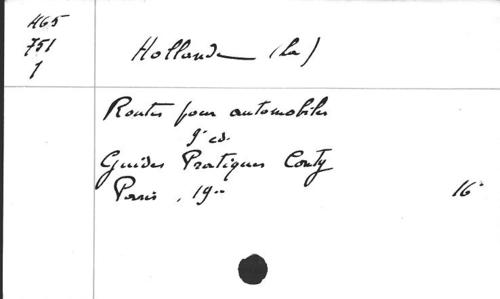 465
751
1
Hollande (La)
Routes pour automobiles
9e ed.
Guides Pratiques Conty
Paris, 19--
16°